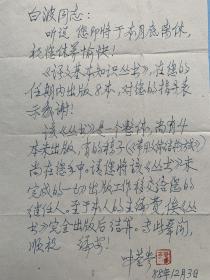 白波同志：
听说您即将于本月底离休，
祝您休养愉快！
《 基本知识丛书》，在您的
任期内出版8本，对您的指导表
示感谢！
该《丛书》是一个整体，尚有4
本未出版，有的稿子《 》
尚在您手中。请您将该《丛书》未
完成的一切出版工作移交给您的
继任人。至于本人的主编费，俟《丛
书》完全出版后结算。专此奉闻，
顺祝 安！
叶
88年12月3日